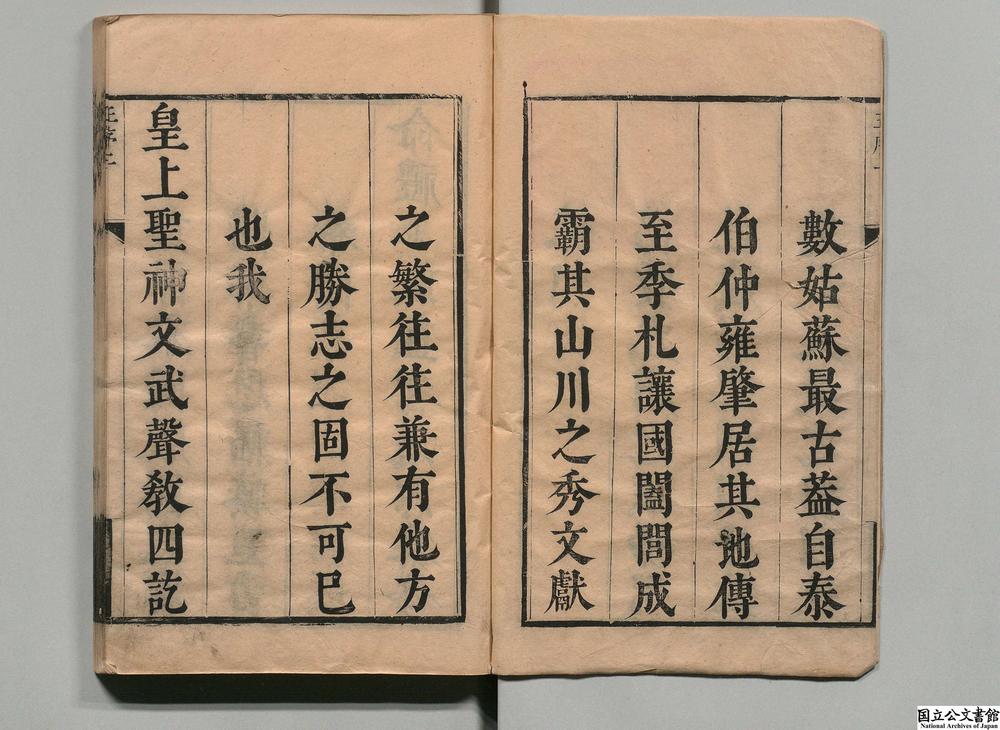 數姑蘇最古葢自泰
伯仲雍肇居其地傳
至季札讓國闔閭成
霸其山川之秀文獻
之繁往往兼有他方
之勝志之固不可已
也我
皇上聖神文武聲敎四訖
国立公文書館
National Archives of Japan